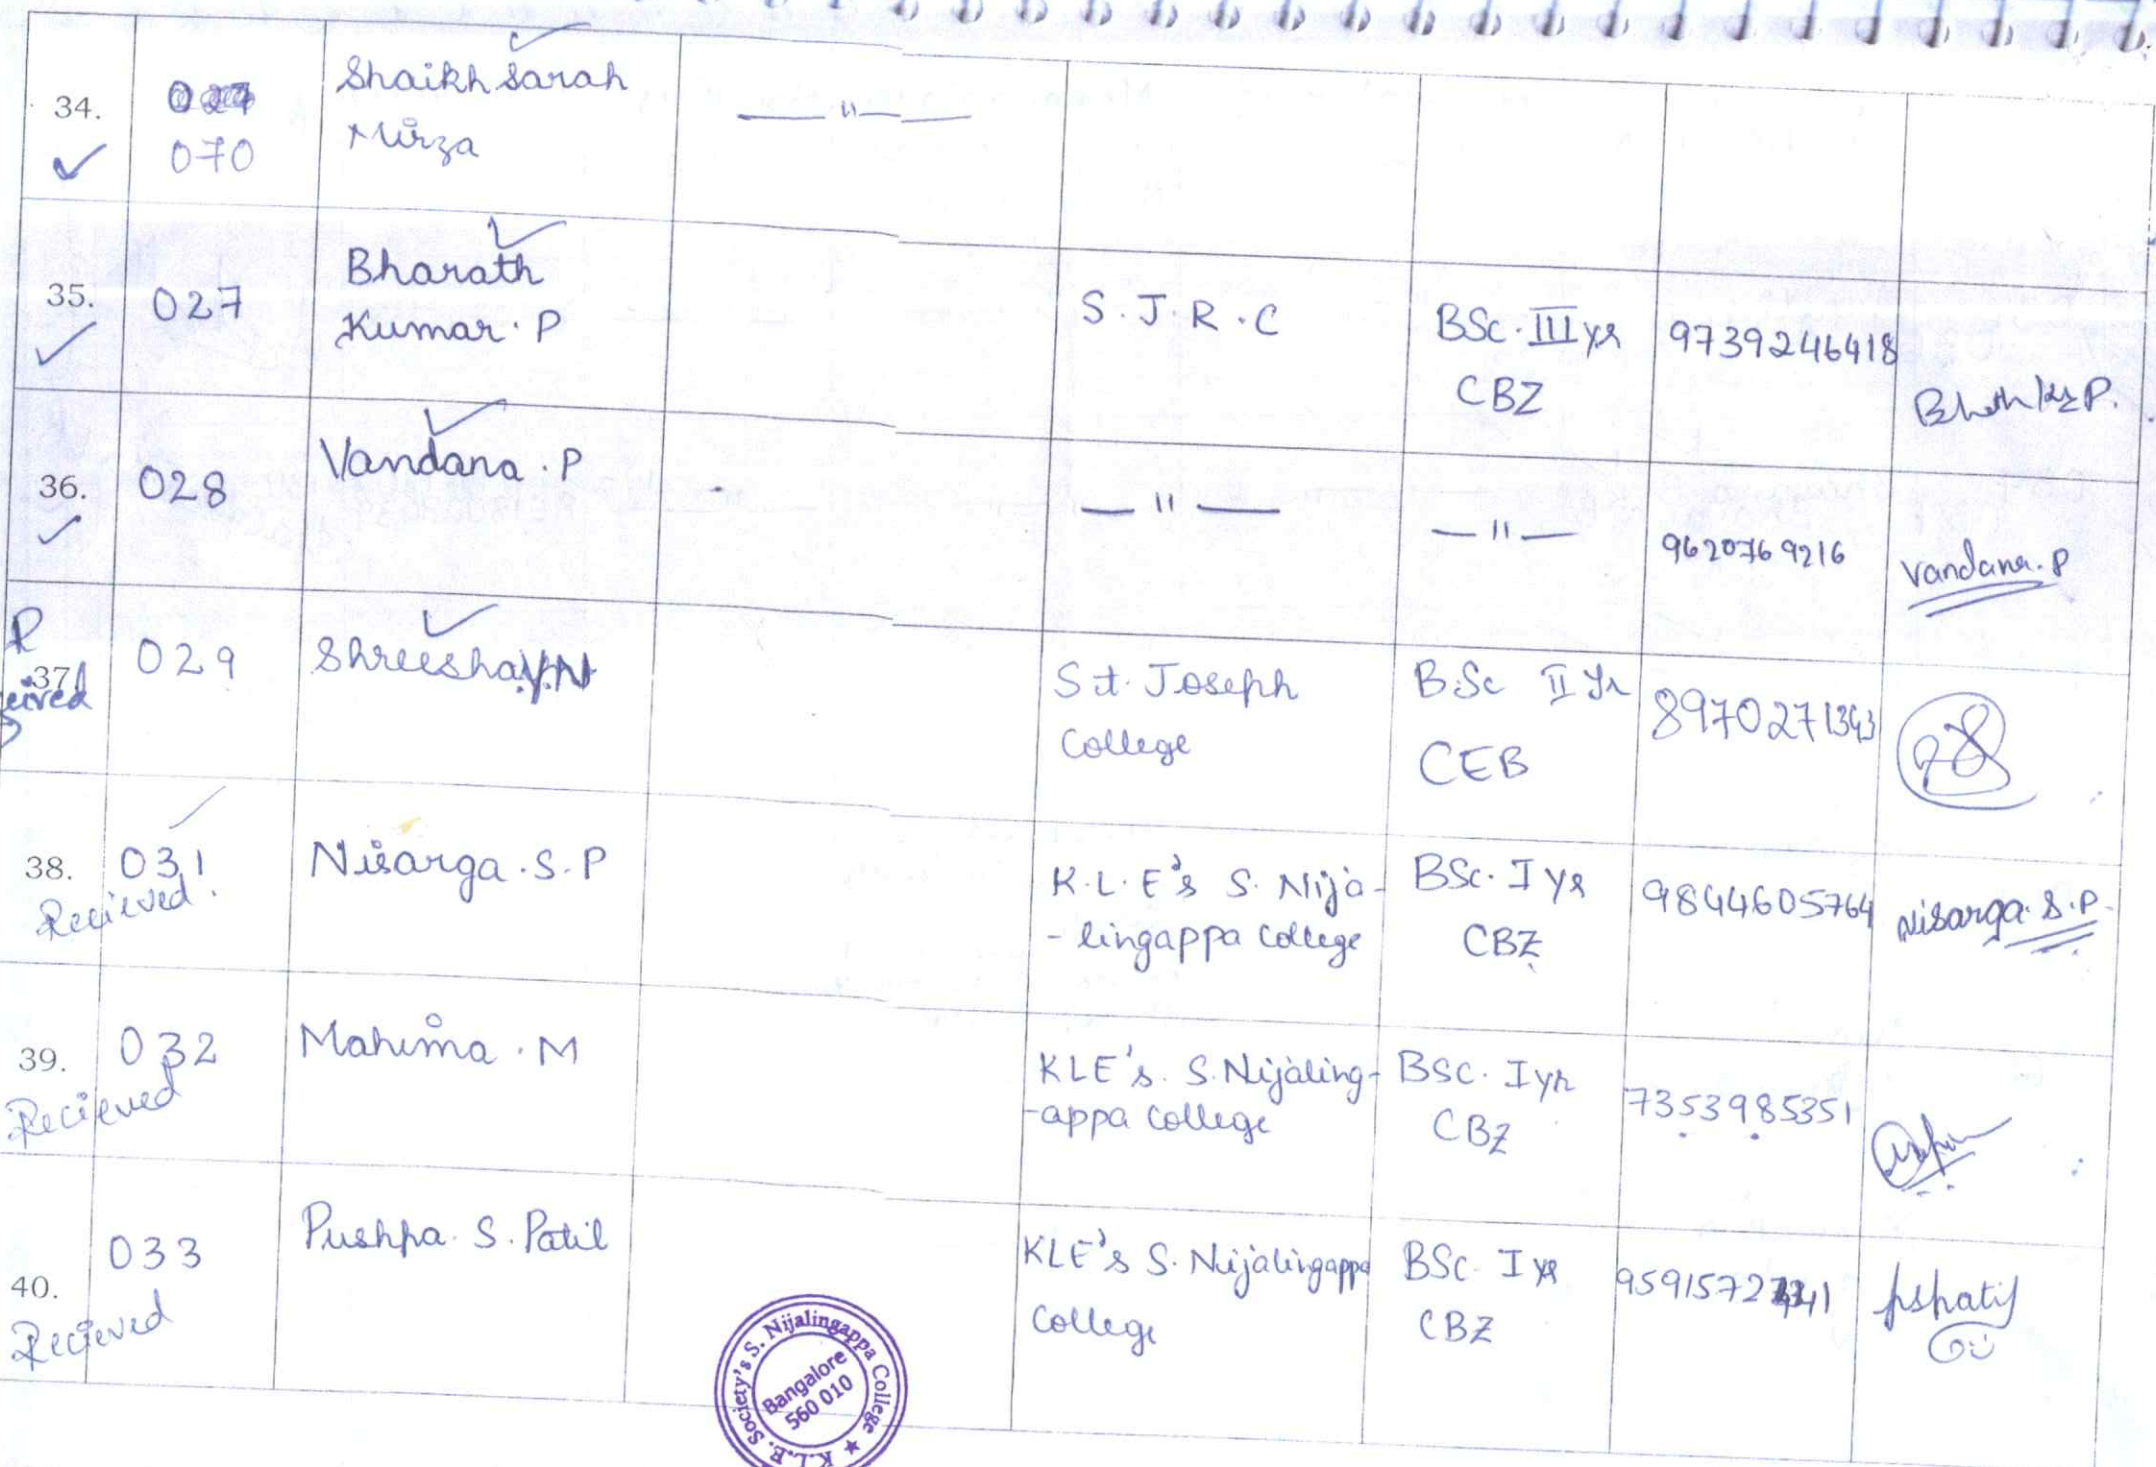 34.
070
Shaikh Sarah
Mirza
— " —
35.
027
Bharath
Kumar. P
S. J. R. C
BSc. III yr
CBZ
9739246418
36.
028
Vandana. P
— " —
— " —
9620769216
Vandana. P
37.
029
Shreesha
St. Joseph
College
B.Sc II Yr
CEB
8970271343
38.
031
Recieved.
Nisarga. S. P
K.L.E's S. Nija-
- lingappa College
BSc. I yr
CBZ
9844605764
Nisarga. S. P
39.
032
Recieved
Mahima. M
KLE's. S. Nijaling-
-appa College
BSc. I yr
CBZ
7353985351
40.
033
Recieved
Pushpa. S. Patil
KLE's S. Nijalingappa
College
BSc. I yr
CBZ
K.L.E. Society's S. Nijalingappa College
Bangalore
560 010